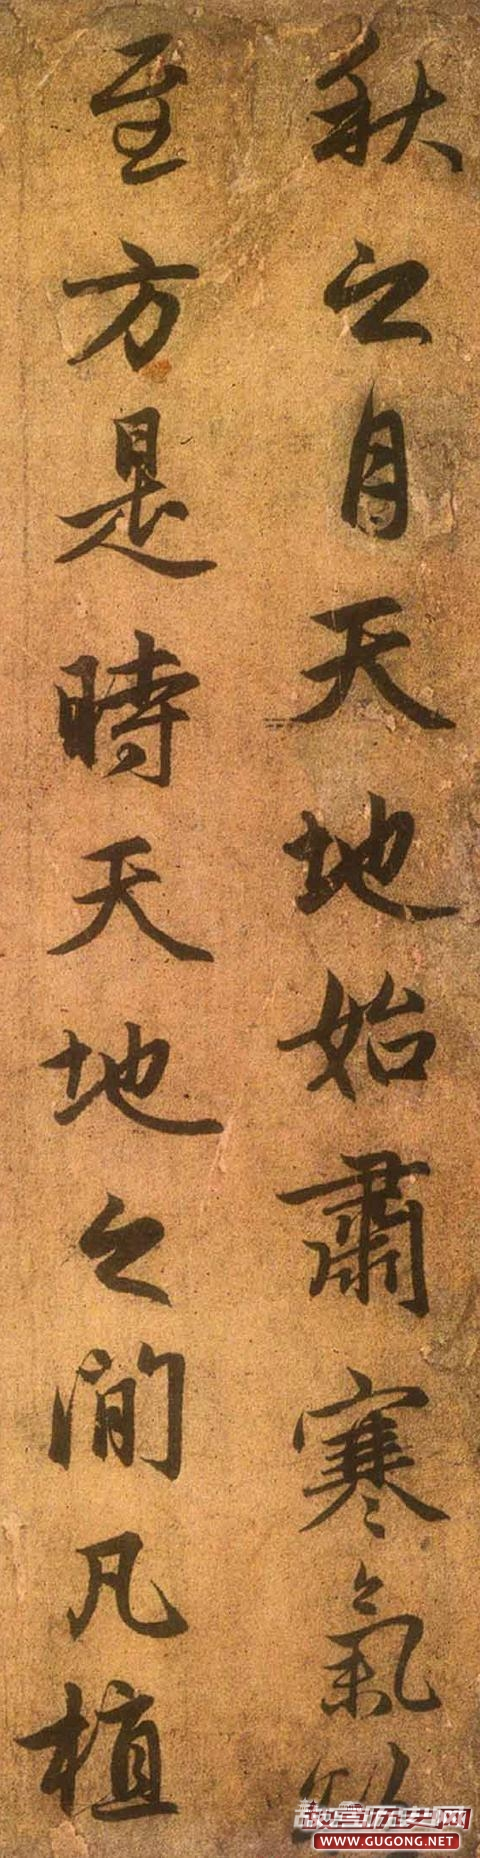 秋之月天地始肅寒氣
至方是時天地之間凡植
故宫历史网
WWW.GUGONG.NET